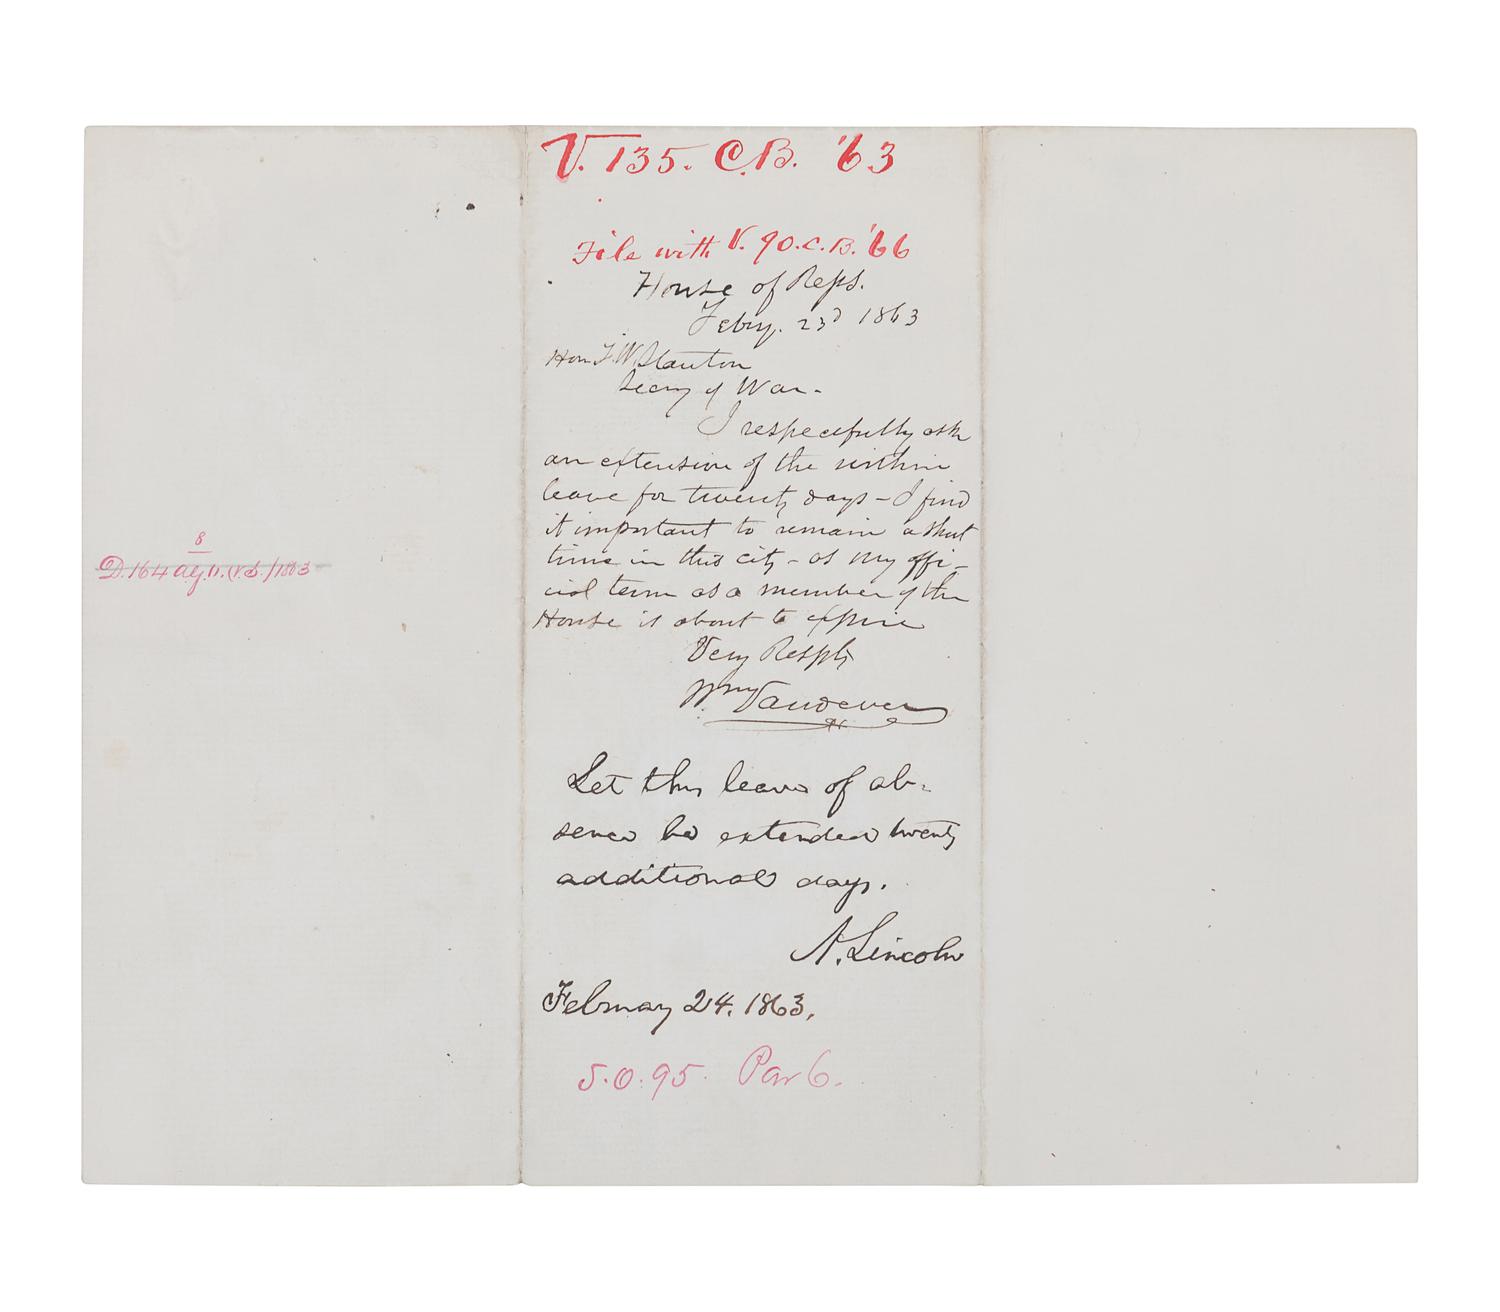 V. 135. C.B. '63
File with V. 90. C.B. '66
House of Reps.
Feby. 23d 1863
Hon E. W. Stanton
Secry of War -
I respecfully ask
an extension of the within
leave for twenty days - I find
it important to remain a short
time in this city - as my offi-
cial term as a member of the
House is about to expire
Very Respfly
Wm Vandever
Let this leave of ab-
sence be extended twenty
additional days.
A. Lincoln
February 24. 1863.
S.O. 95. Par 6.
8
D. 164 A.G.O. (V.S.) 1863